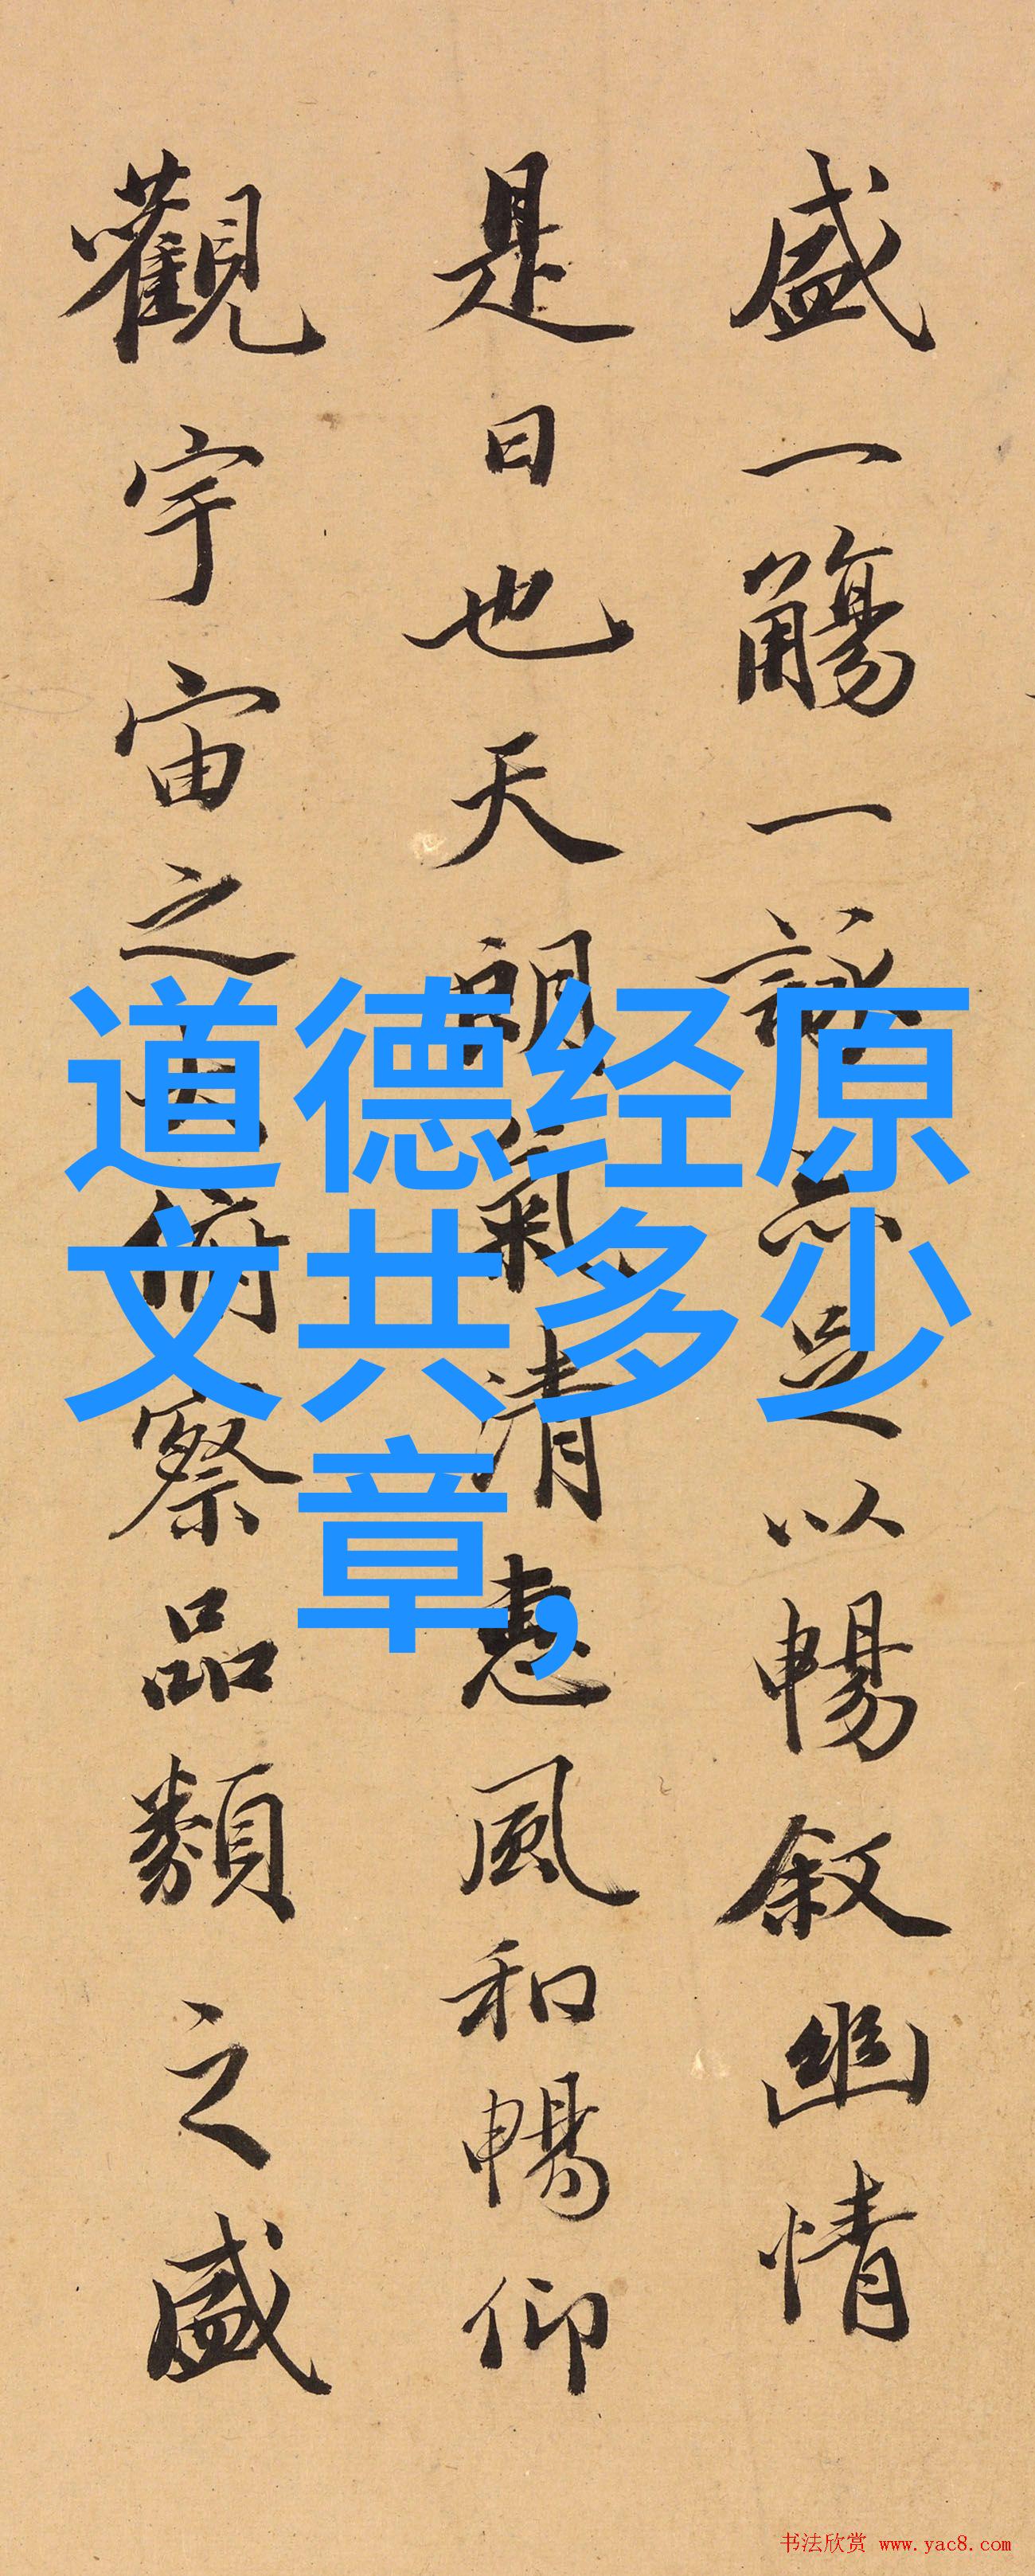 盛一觴一詠亦足以暢叙幽情
是日也天朗氣清惠風和暢仰
觀宇宙之大俯察品類之盛
道德经原
文共多少
章,
书法欣赏 www.yac8.com